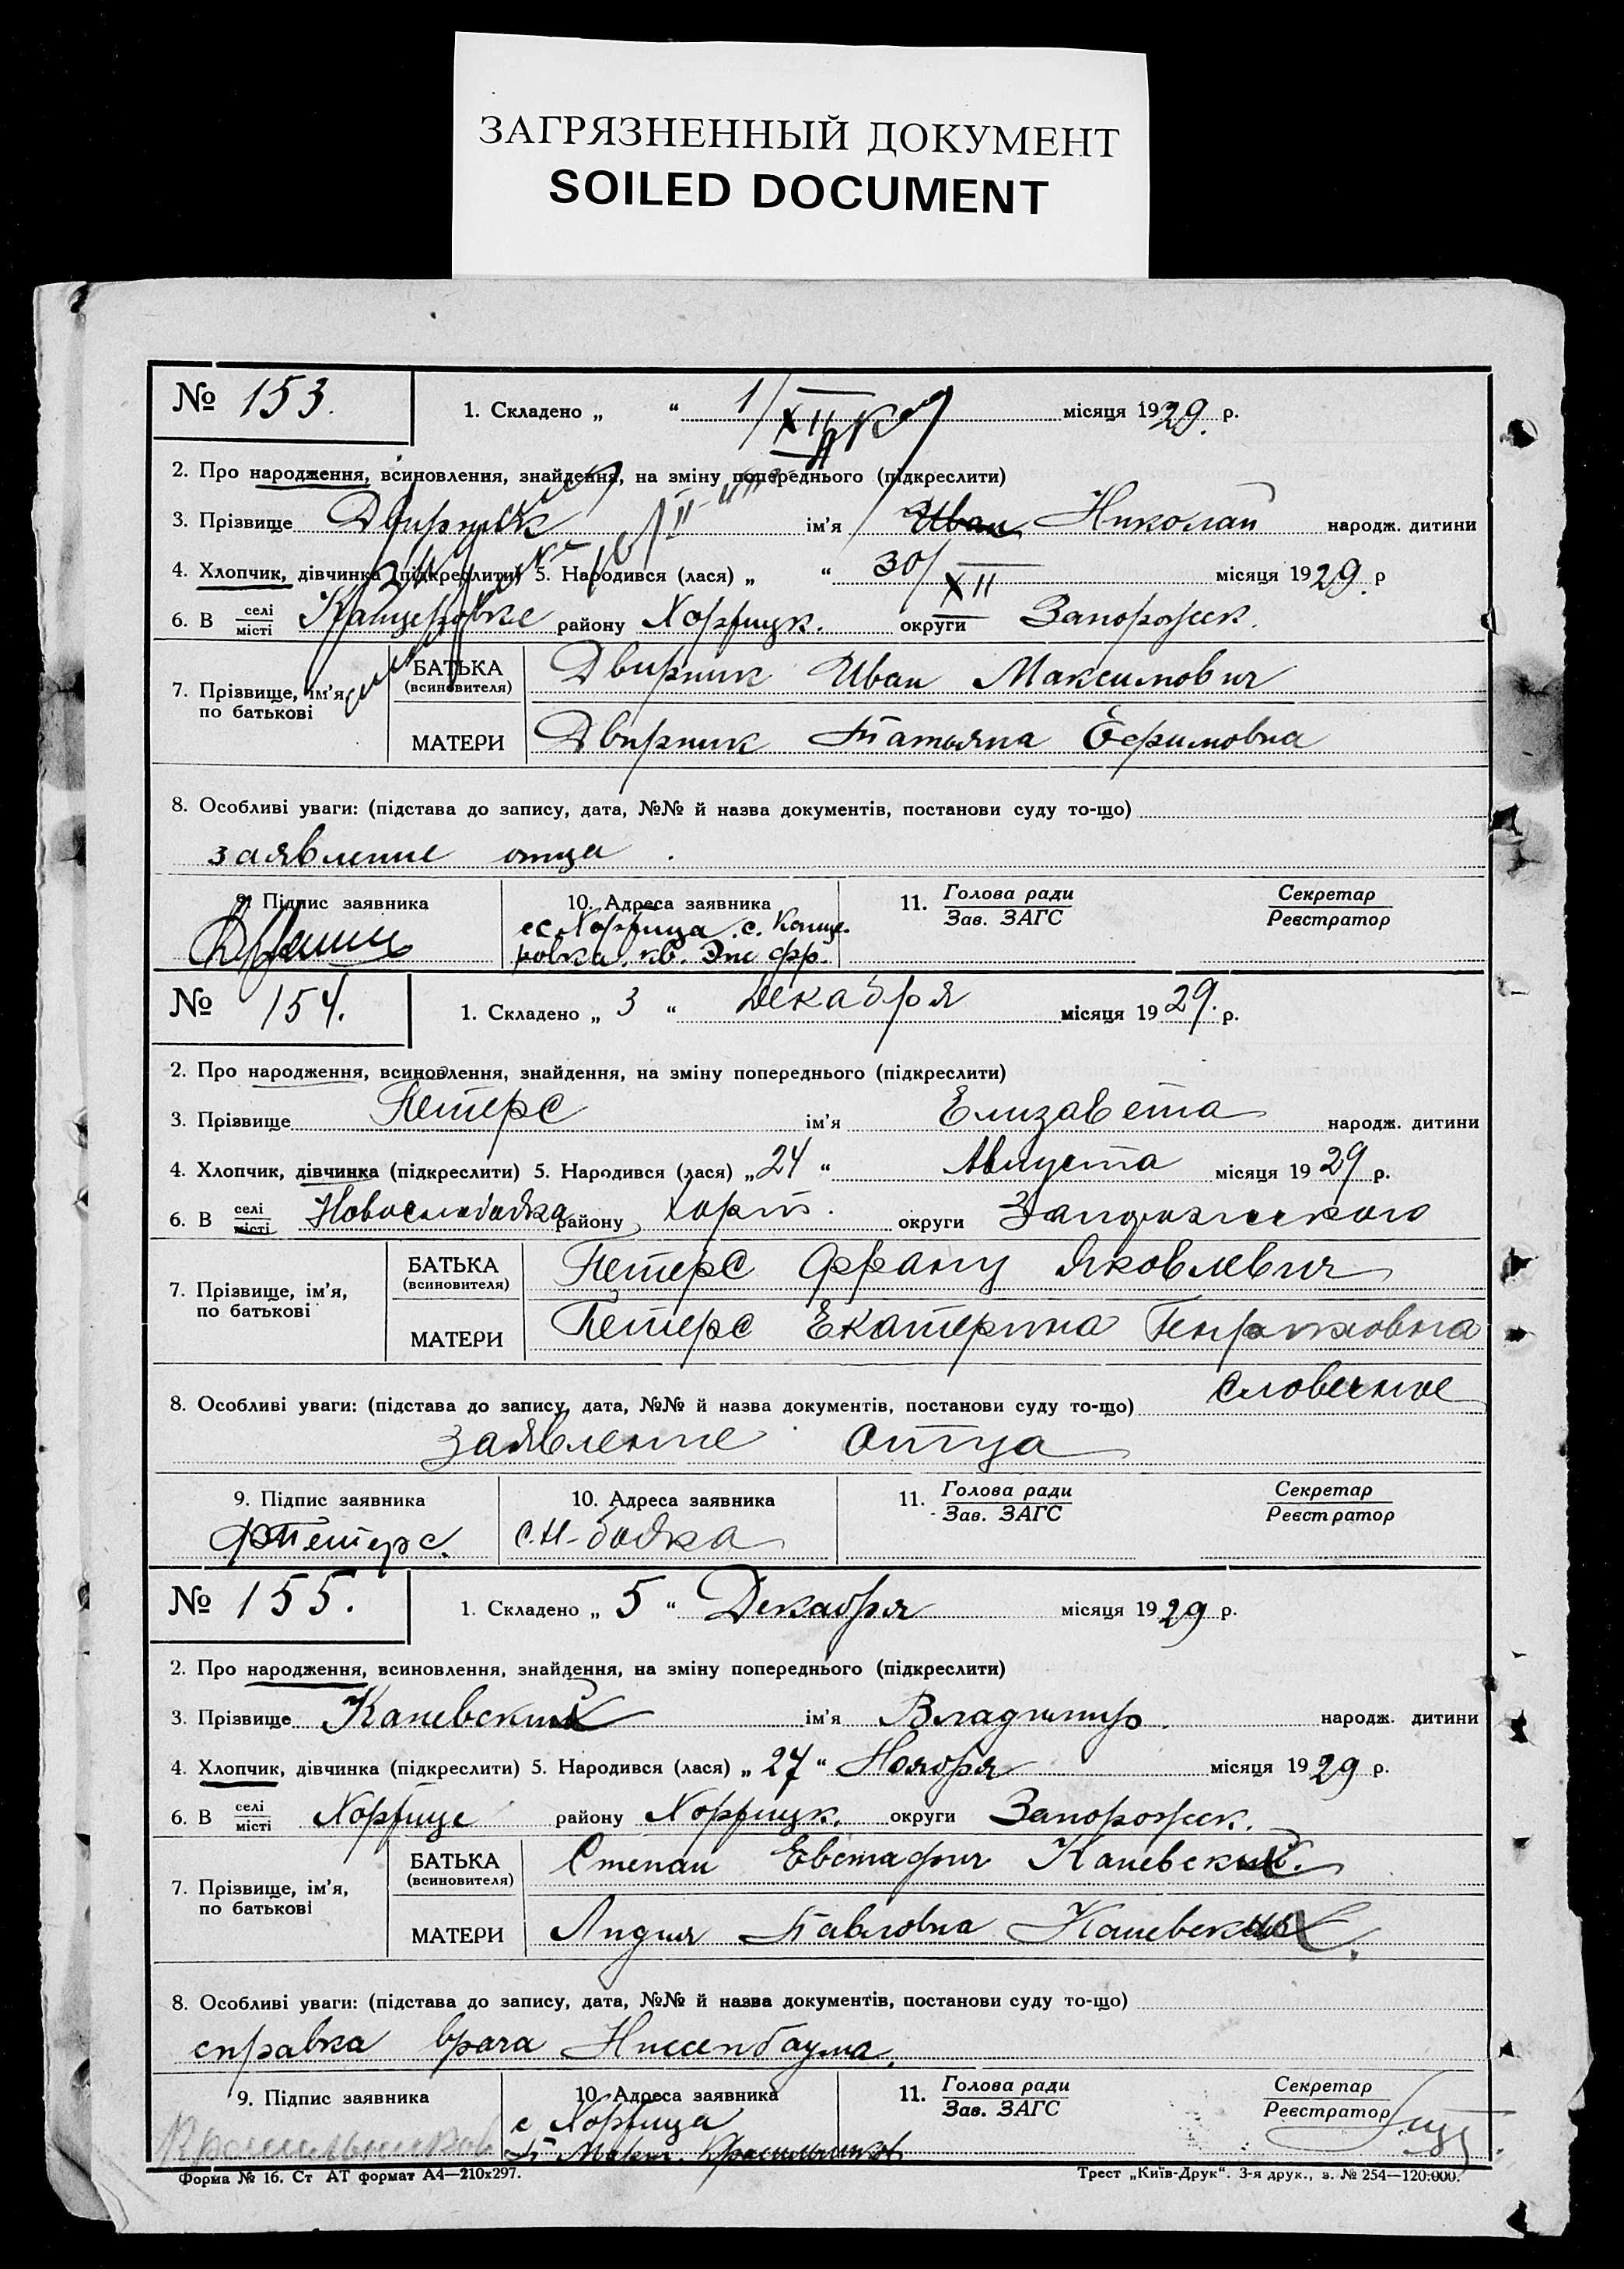 ЗАГРЯЗНЕННЫЙ ДОКУМЕНТ
SOILED DOCUMENT
№ 153. 1. Складено „ “ 1/XII місяця 1929. р.
2. Про народження, всиновлення, знайдення, на зміну попереднього (підкреслити)
3. Прізвище Двирник ім'я Иван Николай народж. дитини
4. Хлопчик, дівчинка (підкреслити) 5. Народився (лася) „ “ 30/XII місяця 1929. р
6. В селі місті Канцеровке району Хортицк. округи Запорожск.
7. Прізвище, ім'я, по батькові БАТЬКА (всиновителя) Двирник Иван Максимович
МАТЕРИ Двирник Татьяна Ефимовна
8. Особливі уваги: (підстава до запису, дата, №№ й назва документів, постанови суду то-що)
заявление отца .
9. Підпис заявника 10. Адреса заявника 11. Голова ради Зав. ЗАГС Секретар Реєстратор
Хортица с. Канце-
ровка. кв.
№ 154. 1. Складено „ 3 “ Декабря місяця 1929. р.
2. Про народження, всиновлення, знайдення, на зміну попереднього (підкреслити)
3. Прізвище Петерс ім'я Елизавета народж. дитини
4. Хлопчик, дівчинка (підкреслити) 5. Народився (лася) „ 24 “ Августа місяця 1929 р.
6. В селі місті Новослободка району Хорт. округи Запорожского
7. Прізвище, ім'я, по батькові БАТЬКА (всиновителя) Петерс Франц Яковлевич
МАТЕРИ Петерс Екатерина Генриховна
8. Особливі уваги: (підстава до запису, дата, №№ й назва документів, постанови суду то-що) словесное
заявление отца
9. Підпис заявника 10. Адреса заявника 11. Голова ради Зав. ЗАГС Секретар Реєстратор
ФПетерс. с. Н-бодка
№ 155. 1. Складено „ 5 “ Декабря місяця 1929 р.
2. Про народження, всиновлення, знайдення, на зміну попереднього (підкреслити)
3. Прізвище Каневский ім'я Владимир. народж. дитини
4. Хлопчик, дівчинка (підкреслити) 5. Народився (лася) „ 27 “ Ноября місяця 1929 р.
6. В селі місті Хортице району Хортицк. округи Запорожск.
7. Прізвище, ім'я, по батькові БАТЬКА (всиновителя) Степан Евстафич Каневский.
МАТЕРИ Лидия Павловна Каневская.
8. Особливі уваги: (підстава до запису, дата, №№ й назва документів, постанови суду то-що)
справка врача Ниссенбаума.
9. Підпис заявника 10. Адреса заявника 11. Голова ради Зав. ЗАГС Секретар Реєстратор
с Хортица
Форма № 16. Ст АТ формат А4—210х297. Трест „Київ-Друк“. 3-я друк., з. № 254—120.000.